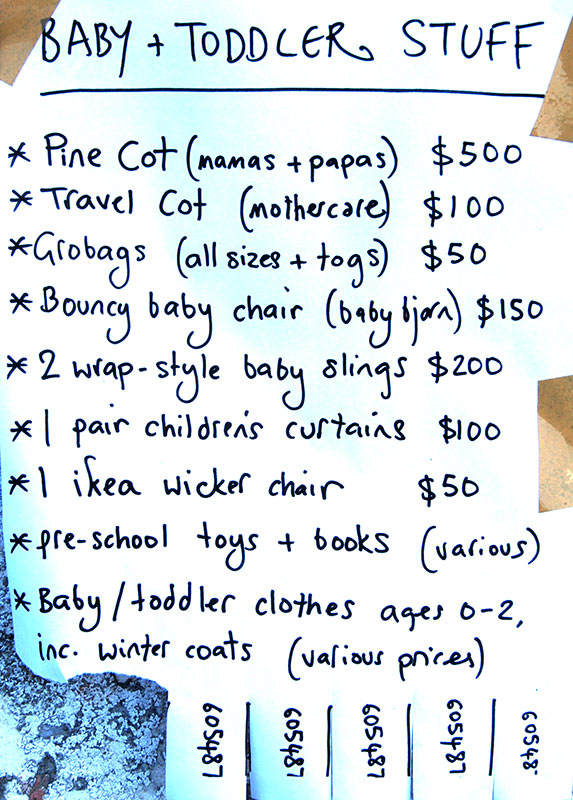 BABY + TODDLER STUFF
* Pine Cot (mamas + papas) $500
* Travel Cot (mothercare) $100
* Grobags (all sizes + togs) $50
* Bouncy baby chair (baby bjorn) $150
* 2 wrap-style baby slings $200
* 1 pair children's curtains $100
* 1 ikea wicker chair $50
* pre-school toys + books (various)
* Baby/toddler clothes ages 0-2,
inc. winter coats (various prices)
605487
605487
605487
605487
60548